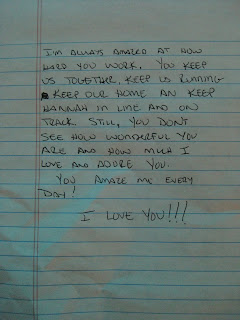 I'M ALWAYS AMAZED AT HOW
HARD YOU WORK. YOU KEEP
US TOGETHER, KEEP US RUNNING
KEEP OUR HOME AN KEEP
HANNAH IN LINE AND ON
TRACK. STILL, YOU DON'T
SEE HOW WONDERFUL YOU
ARE AND HOW MUCH I
LOVE AND ADORE YOU.
YOU AMAZE ME EVERY
DAY!
I LOVE YOU!!!